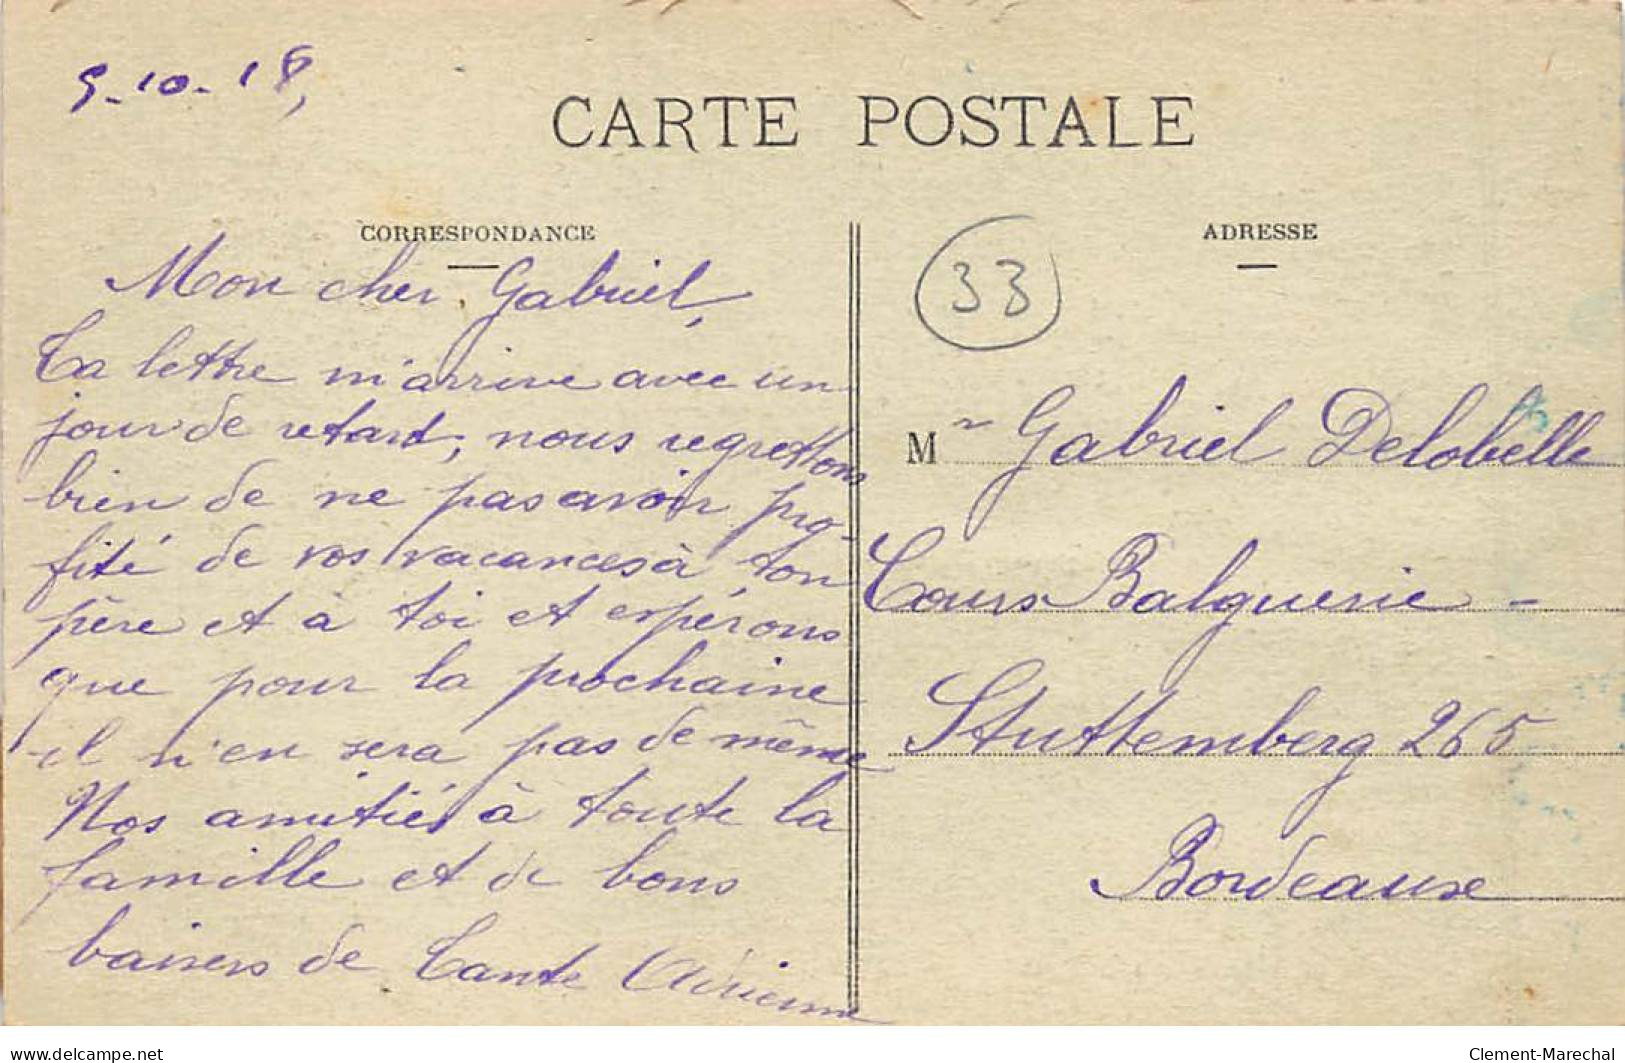 5-10-18,
CARTE POSTALE
CORRESPONDANCE
Mon cher Gabriel,
Ta lettre m'arrive avec un
jour de retard, nous regrettons
bien de ne pas avoir pro-
fité de vos vacances à ton
père et à toi et espérons
que pour la prochaine
il n'en sera pas de même
Nos amitiés à toute la
famille et de bons
baisers de Tante Adrienne
ADRESSE
33
Mr Gabriel Delobelle
Cours Balguerie -
Stuttemberg 265
Bordeaux
www.delcampe.net
Clement-Marechal